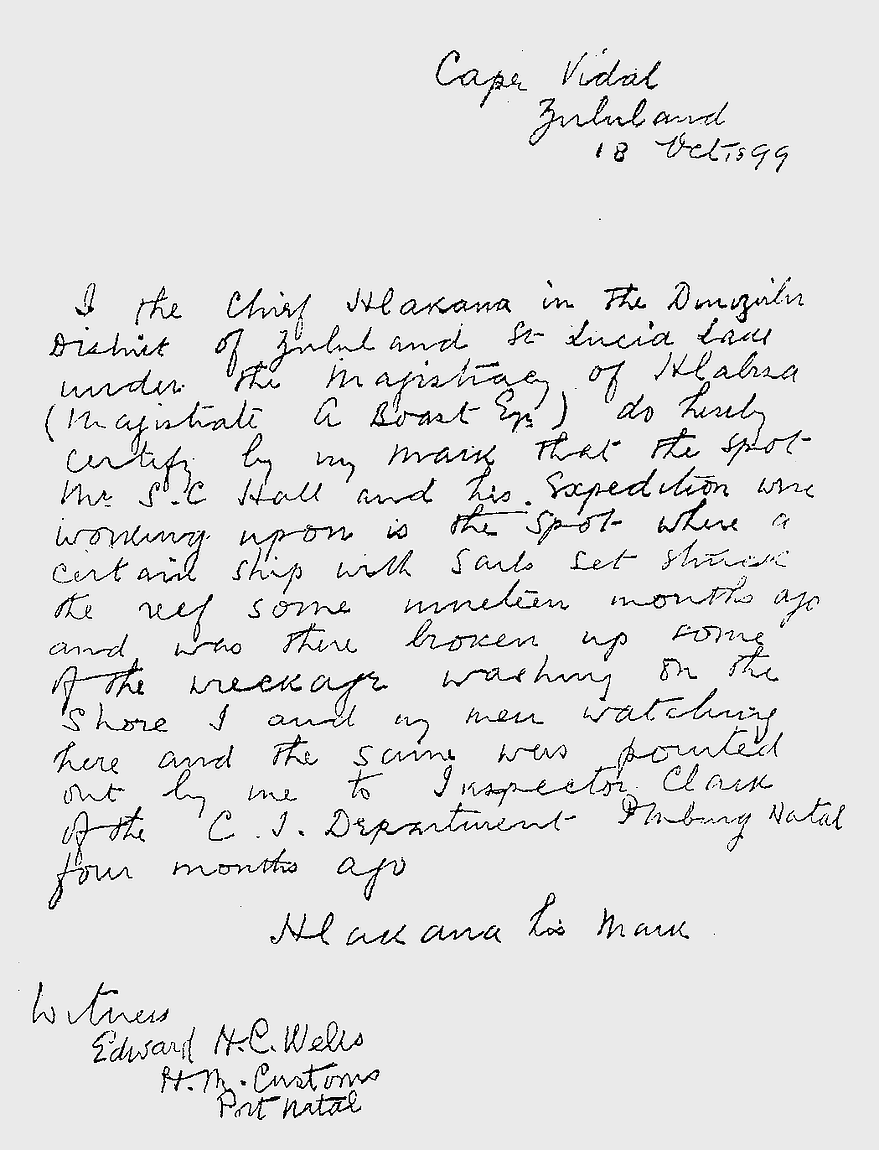 Cape Vidal
Zululand
18 Oct 1899
I the Chief Hlakana in the
District of Zululand St Lucia Lake
under the Magistracy of Hlabisa
(Magistrate A Boast Esq) do hereby
certify by my mark that the spot
Mr S.C Hall and his Expedition were
working upon is the spot where a
certain ship with sails set struck
the reef some nineteen months ago
and was there broken up some
of the wreckage washing on the
Shore I and my men watching
here and the same was pointed
out by me to Inspector Clark
of the C.I. Department PMburg Natal
four months ago
Hlakana his Mark
Witness
Edward H.C. Wells
H.M. Customs
Port Natal